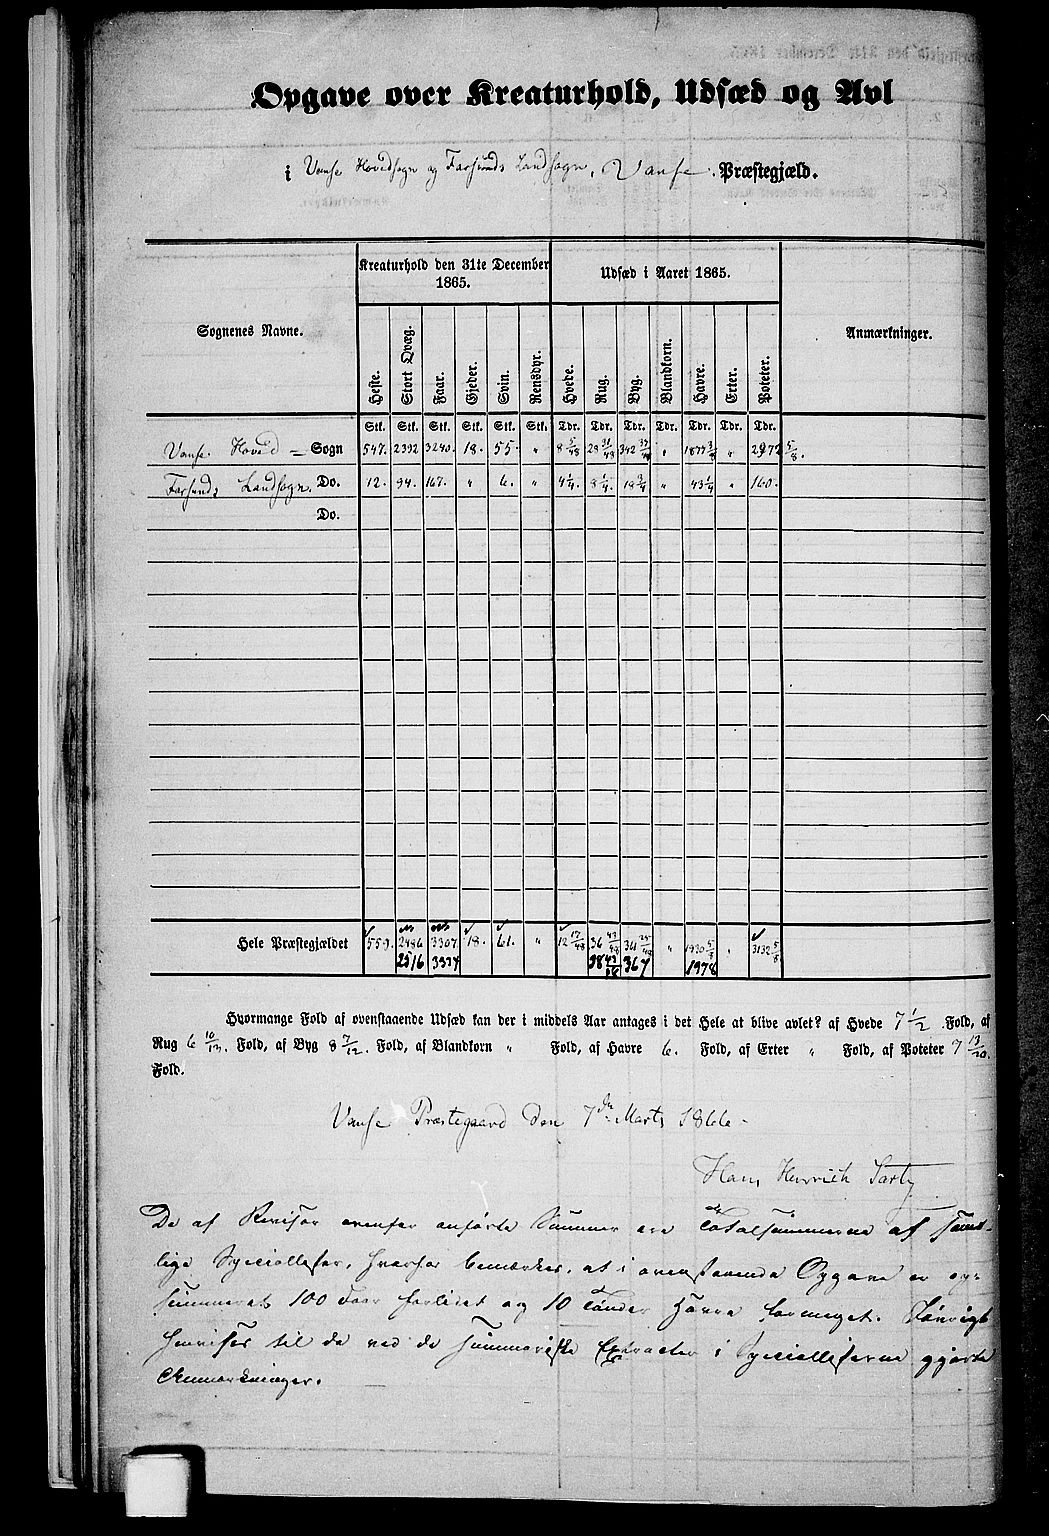 Opgave over Kreaturhold, Udsæd og Avl
i Vanse Hovedsogn og Farsunds Landsogn, Vanse Præstegjæld.
Kreaturhold den 31te December 1865.
Udsæd i Aaret 1865.
Sognenes Navne. Heste. Stort Qvæg. Faar. Gjeder. Svin. Rensdyr. Hvede. Rug. Byg. Blandkorn. Havre. Erter. Poteter. Anmærkninger.
Stk. Stk. Stk. Stk. Stk. Stk. Tdr. Tdr. Tdr. Tdr. Tdr. Tdr. Tdr.
Vanse Hoved - Sogn 547. 2392 3240. 18. 55. " 8 5/48 28 31/48 342 " " 2972 5/8.
Farsunds Landsogn. Do. 12. 94. 167. " 6. " 4 1/4. 8 1/4. 18 3/4 " 43 1/4 " 160.
Do.
Hele Præstegjældet 559. 2486 3307 18. 61. " 12 17/48 36 43/48 361 25/48 " 1930 5/8 " 3132 5/8
2516 3334 38 43/48 367 1978
Hvormange Fold af ovenstaaende Udsæd kan der i middels Aar antages i det Hele at blive avlet? af Hvede 7 1/2. Fold, af
Rug 6 10/13. Fold, af Byg 8 7/12. Fold, af Blandkorn " Fold, af Havre 6. Fold, af Erter " Fold, af Poteter 7 13/20.
Fold.
Vanse Præstegaard den 7de Marts 1866.
Hans Henrich
De af Revisor ovenfor anførte Summer ere Totalsummerne af samt-
lige Speciallister, hvorfor bemærkes, at i ovenstaaende Opgave er op-
summeret 100 Faar forlidet og 10 Tønder Havre formeget. Iøvrigt
henvises til de ved de summariske Extracter i Speciallisterne gjorte
Anmærkninger.